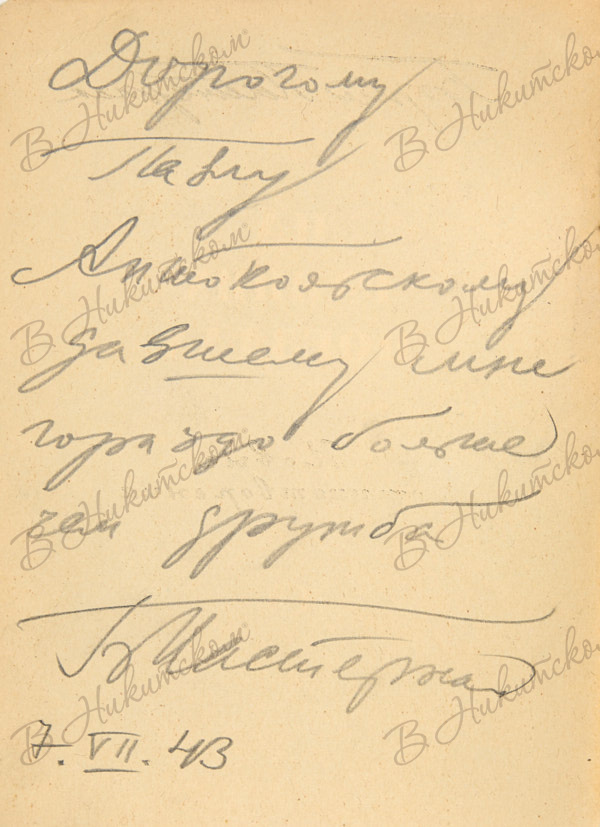 Дорогому
Павлу
Антокольскому
давшему мне
гораздо больше
чем дружба
7. VII. 43
В Никитском
В Никитском
В Никитском
В Никитском
В Никитском
В Никитском
В Никитском
В Никитском